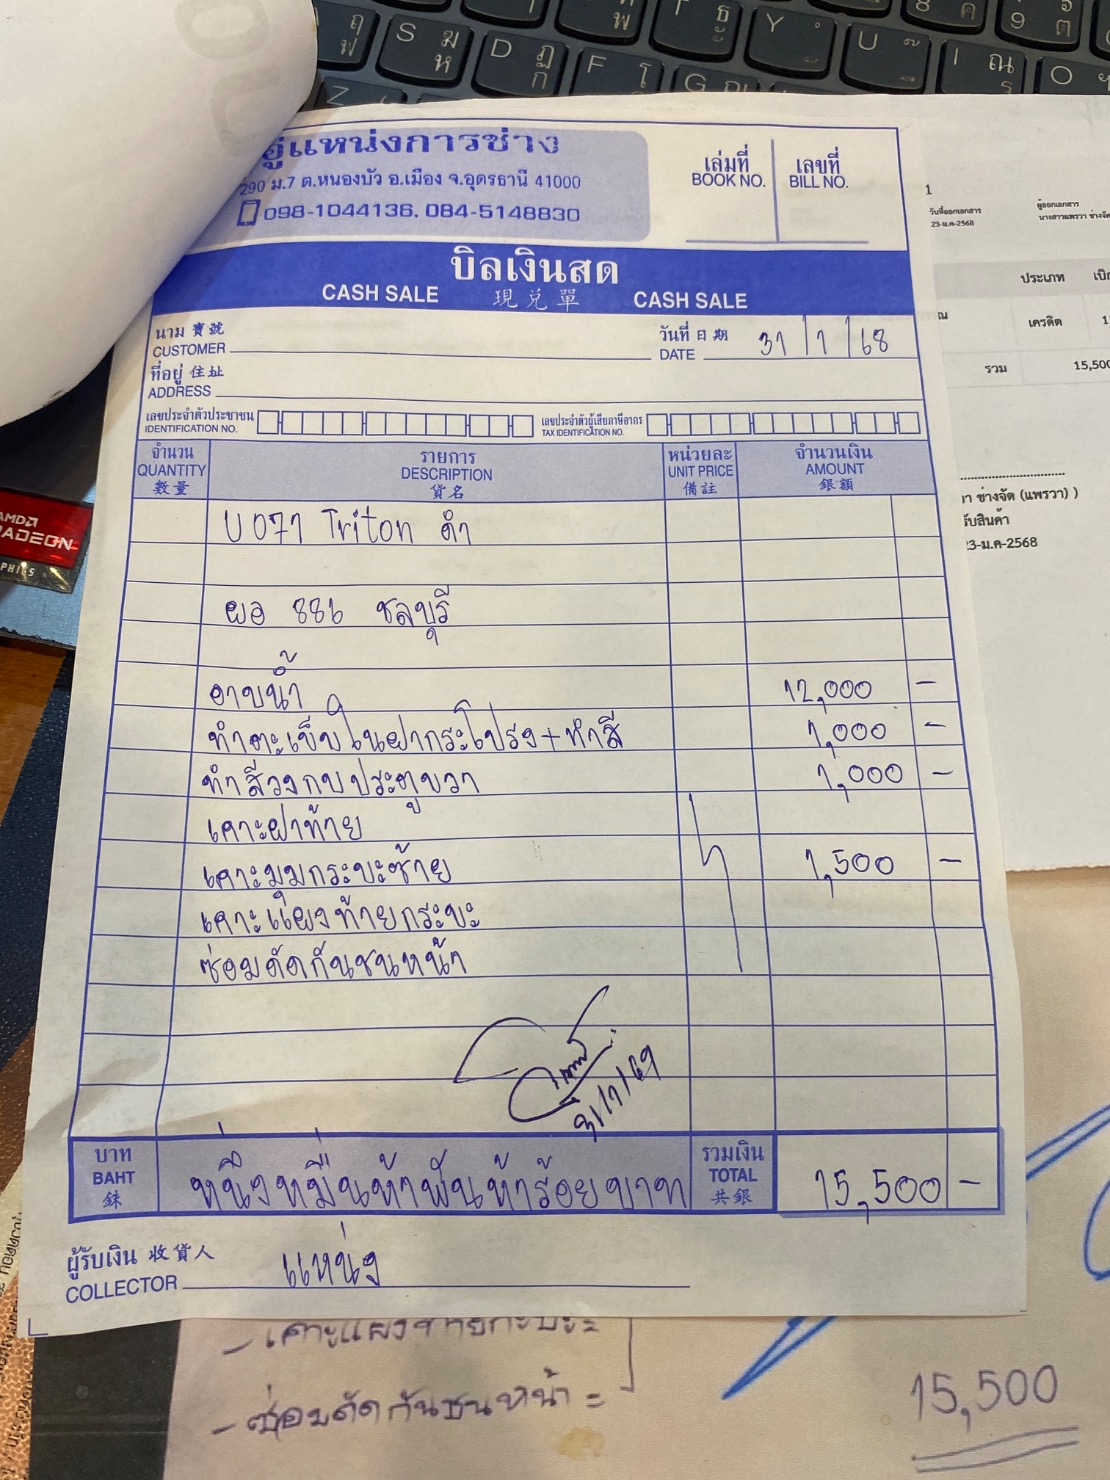 อู่แหน่งการช่าง
290 ม.7 ต.หนองบัว อ.เมือง จ.อุดรธานี 41000
098-1044136, 084-5148830
เล่มที่ เลขที่
BOOK NO. BILL NO.
บิลเงินสด
CASH SALE 現兑單 CASH SALE
นาม 寶號
CUSTOMER
วันที่ 日期
DATE 31/1/68
ที่อยู่ 住址
ADDRESS
เลขประจำตัวประชาชน
IDENTIFICATION NO.
เลขประจำตัวผู้เสียภาษีอากร
TAX IDENTIFICATION NO.
จำนวน รายการ หน่วยละ จำนวนเงิน
QUANTITY DESCRIPTION UNIT PRICE AMOUNT
數量 貨名 備註 銀額
U071 Triton ดำ
ผอ 886 ชลบุรี
อาบน้ำ 12,000 -
ทำตะเข็บในฝากระโปรง+ทำสี 1,000 -
ทำสีวงกบประตูขวา 1,000 -
เคาะฝาท้าย
เคาะมุมกระบะซ้าย 1,500 -
เคาะแผงท้ายกระบะ
ซ่อมดัดกันชนหน้า
31/1/69
บาท
BAHT
銖
หนึ่งหมื่นห้าพันห้าร้อยบาท
รวมเงิน
TOTAL
共銀
15,500 -
ผู้รับเงิน 收貨人
COLLECTOR แหน่ง
- เคาะแผงท้ายกะบะ =
- ซ่อมดัดกันชนหน้า =
15,500
1
วันที่ออกเอกสาร
23-ม.ค-2568
ผู้ออกเอกสาร
นางสาวแพรวา ช่างจัด
ประเภท
เครดิต
รวม 15,500
ช่างจัด (แพรวา) )
รับสินค้า
23-ม.ค-2568
AMD
RADEON
S ฆ ห
D ฏ ก
F โ
G
Y
U
I ณ ร
O
Z
8 ค
9 ต